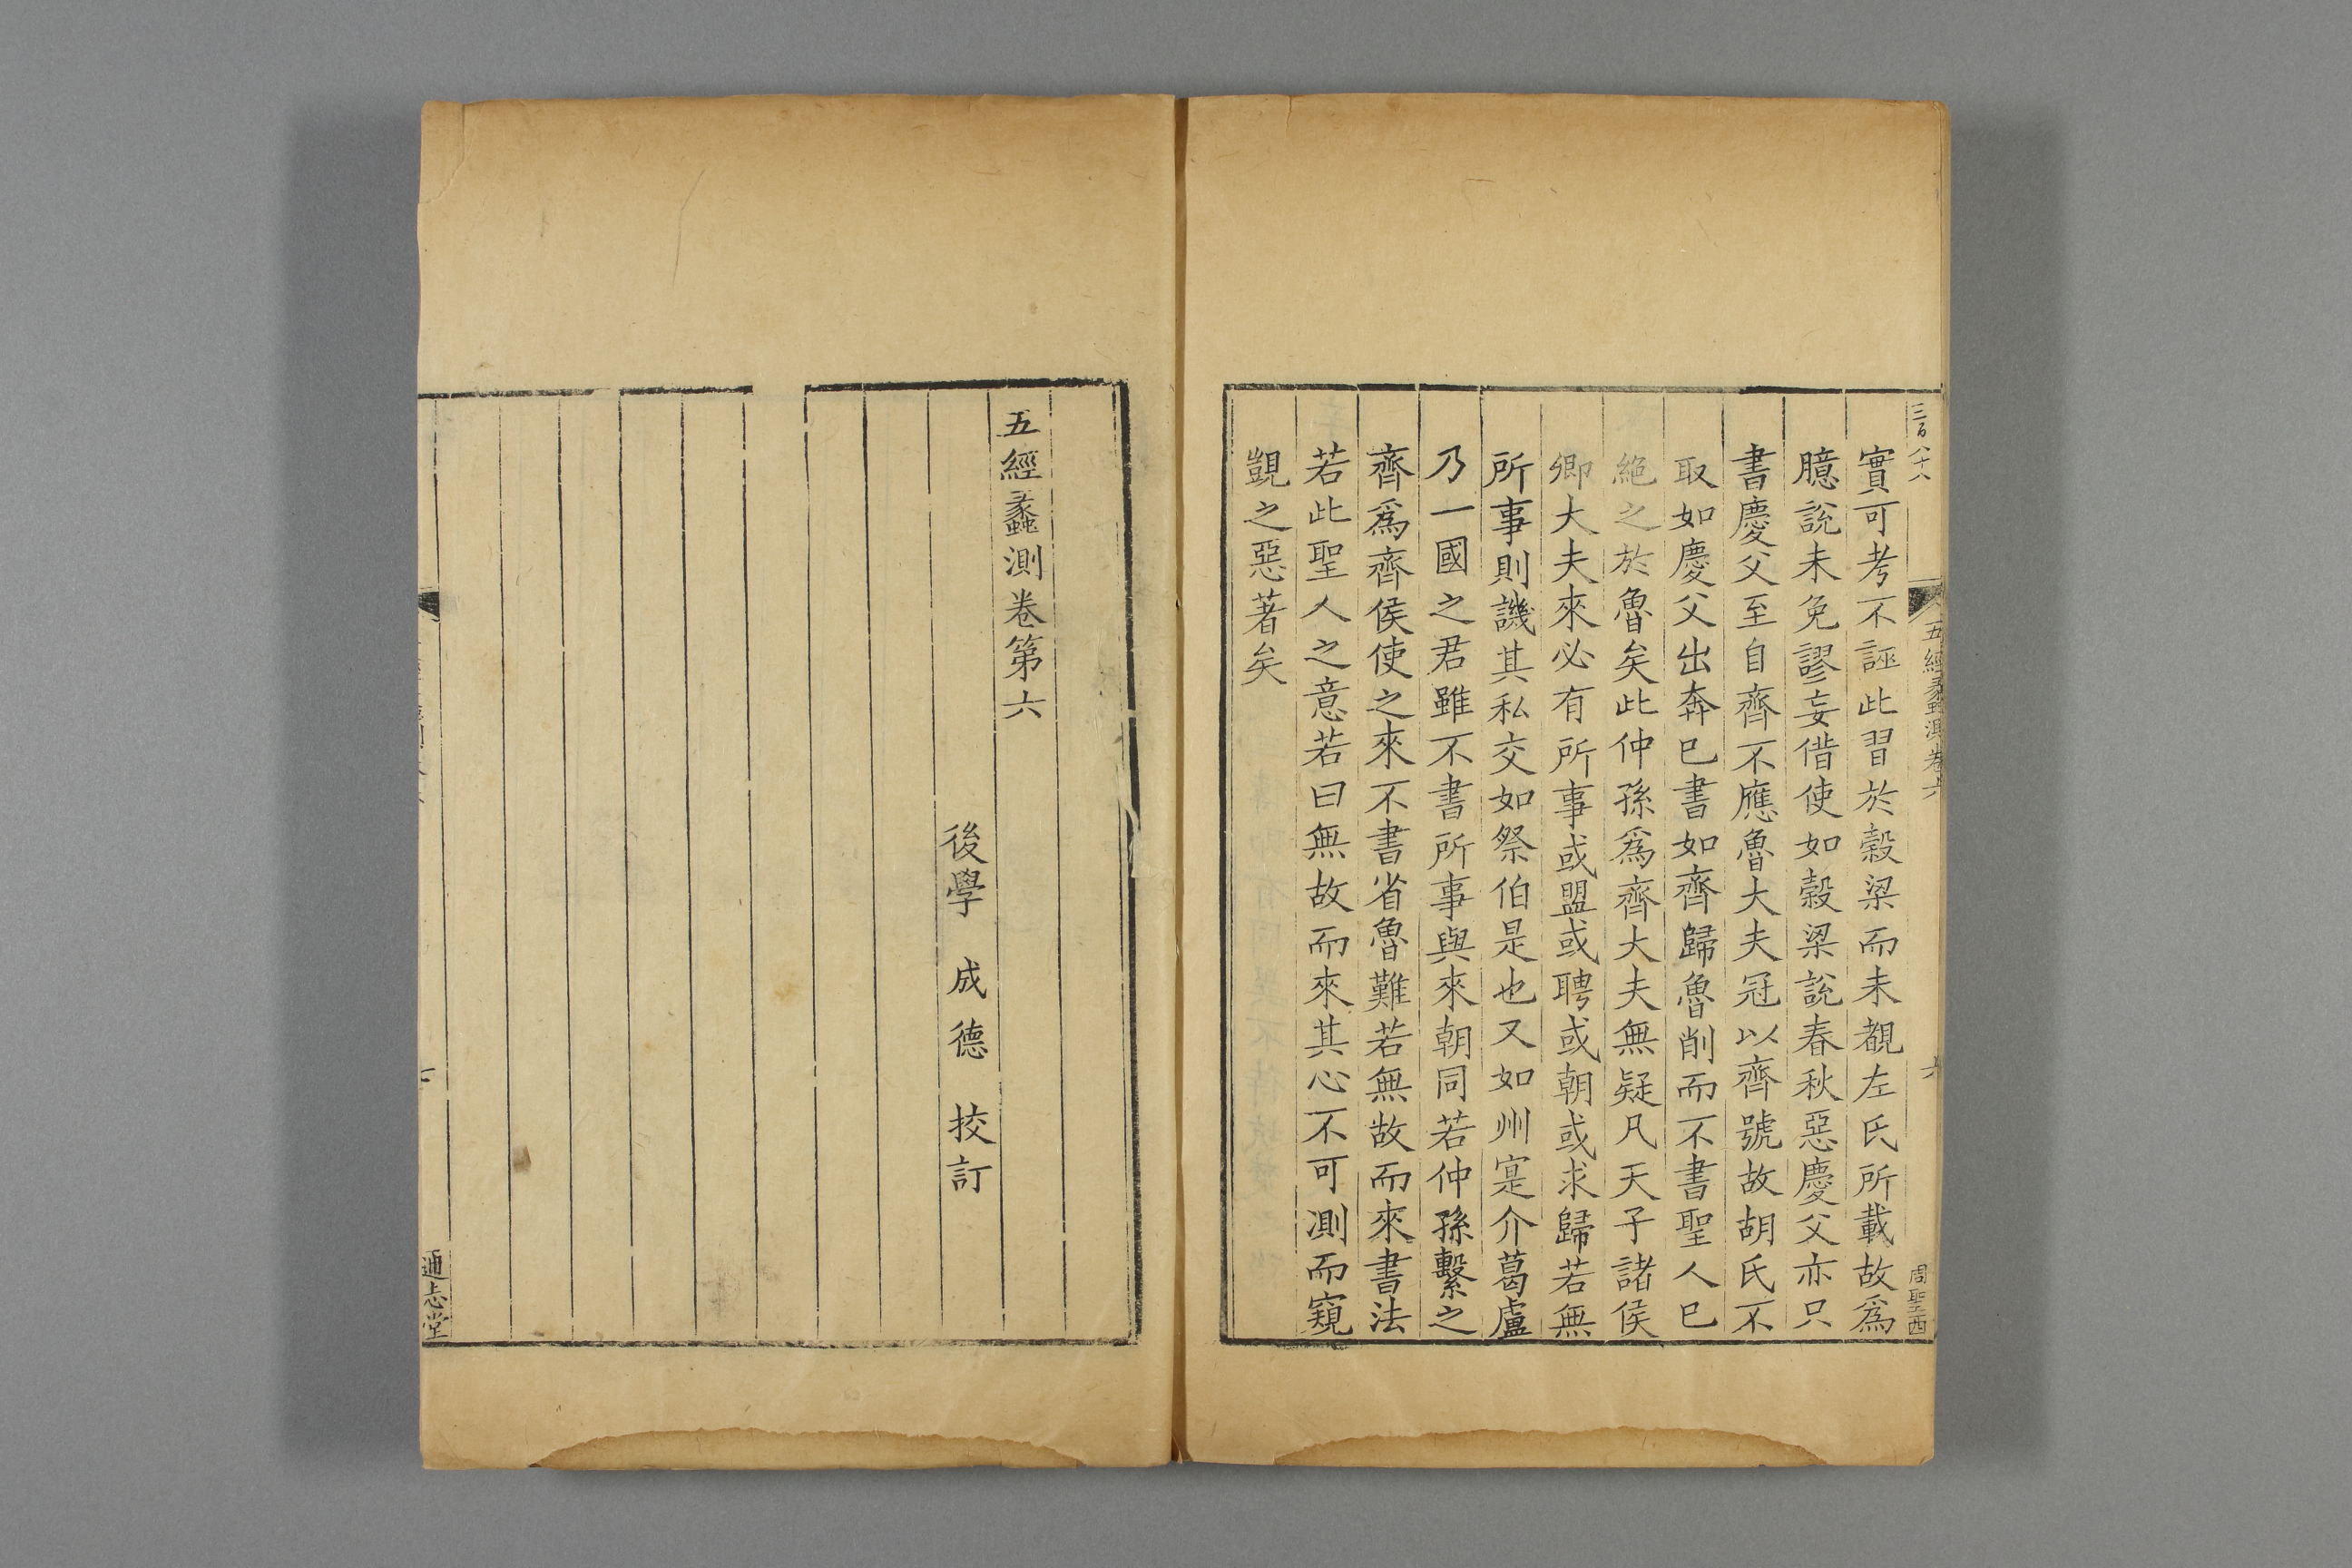 三百八十八
五經蠡測卷六
六
周聖西
實可考不誣此習於穀梁而未覩左氏所載故爲
臆說未免謬妄借使如穀梁說春秋惡慶父亦只
書慶父至自齊不應魯大夫冠以齊號故胡氏不
取如慶父出奔已書如齊歸魯削而不書聖人已
絕之於魯矣此仲孫爲齊大夫無疑凡天子諸侯
卿大夫來必有所事或盟或聘或朝或求歸若無
所事則譏其私交如祭伯是也又如州寔介葛盧
乃一國之君雖不書所事與來朝同若仲孫繫之
齊爲齊侯使之來不書省魯難若無故而來書法
若此聖人之意若曰無故而來其心不可測而窺
覬之惡著矣
五經蠡測卷第六
後學 成德 挍訂
通志堂